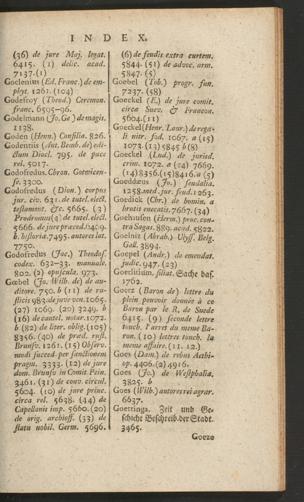 INDEX.
(36) de jure Maj. legat.
6415. (1) delic. acad.
7137.(1)
Goclenius (Ed. Franc.) de em-
phyt. 1261. (104)
Godefroy (Theod.) Ceremon.
franc. 6595-96.
Godelmann (Jo. Ge) de magis.
1138.
Goden (Henn.) Consilia. 826.
Godentiis (Ant. Beneb. de) edi-
ctum Diocl. 795. de pace
rel. 5017.
Godofredus. Chron. Gotwicen-
se. 3300.
Godofredus (Dion.) corpus
jur. civ. 631. de tutel. elect.
testament. &c. 5665. (3)
Prodromus(4) de tutel. elect.
5666. de jure praeced.
b. histor. d. 7495. autores lat.
7750.
Godofredus (Jac.) Theodos.
codex. 632-33. manuale.
802. (2) opuscula. 973.
Goebel (Jo. Wilh. de) de au-
ditore. 750. b (11) de ru-
sticis 983. de juve ven. 1065.
(27) 1069. (20) 3249. b
(16) de cautel. notar. 1072.
b (82) de liter. oblig. (105)
8356. (40) de praed. rust.
Brunsv. 1261. (15) Observ.
modi succed. per sanctionem
pragm. 3333. (12) de jure
dom. Brunsv in Comit Pein.
3461. (31) de conv. circul.
5604. (10) de jure princ.
circa rel. 5638. (44) de
Capellanis imp. 5660. (20)
de orig. archioff. (33) de
statu nobil. Germ. 5696.
(6) de feudis extra curtem.
5844. (51) de advoc. arm.
5847. (5)
Goebel (Tob.) progr. fun.
7237. (58)
Goeckel (E.) de jure comit.
circa Suev. & Francon.
5604. (11)
Goeckel (Henr. Laur.) de rega-
li nitr. fod. 1067. a (15)
1073. (13) 5845 b (8)
Goeckel (Lud.) de juried.
crim. 1072. a (14) 7669.
(14) 8356. (15) 8416. a (5)
Goeddaeus (Jo.) feudalia.
1258. med. jur. feud. 1263.
Goedick (Chr.) de homin. a
brutis enecatis. 7667. (34)
Goehausen (Herm.) proc. con-
tra Sagas. 889. accus. 5822.
Goelnitz (Abrah.) Ulyss. Belg.
Gall. 3894.
Goepel (Andr.) de emendat.
judic. 947. (23)
Goerlitium, siliat. Sache das.
1762.
Goertz (Baron de) lettre du
plein pouvoir donnée à ce
Baron par le R. de Suede
6415. (9) seconde lettre
touch. l'arret du meme Ba-
ron. (10) lettres touch. la
meme affaire. (11. 12.)
Goes (Dam.) de rebus Aethi-
op. 4406. (2) 4916.
Goes (Jo.) de Westphalia.
3825. b
Goes (Wilh.) autores rei agrar.
6637.
Goettinga. Zeit und Ge-
schicht Beschreib. der Stadt.
3465.
Goeze